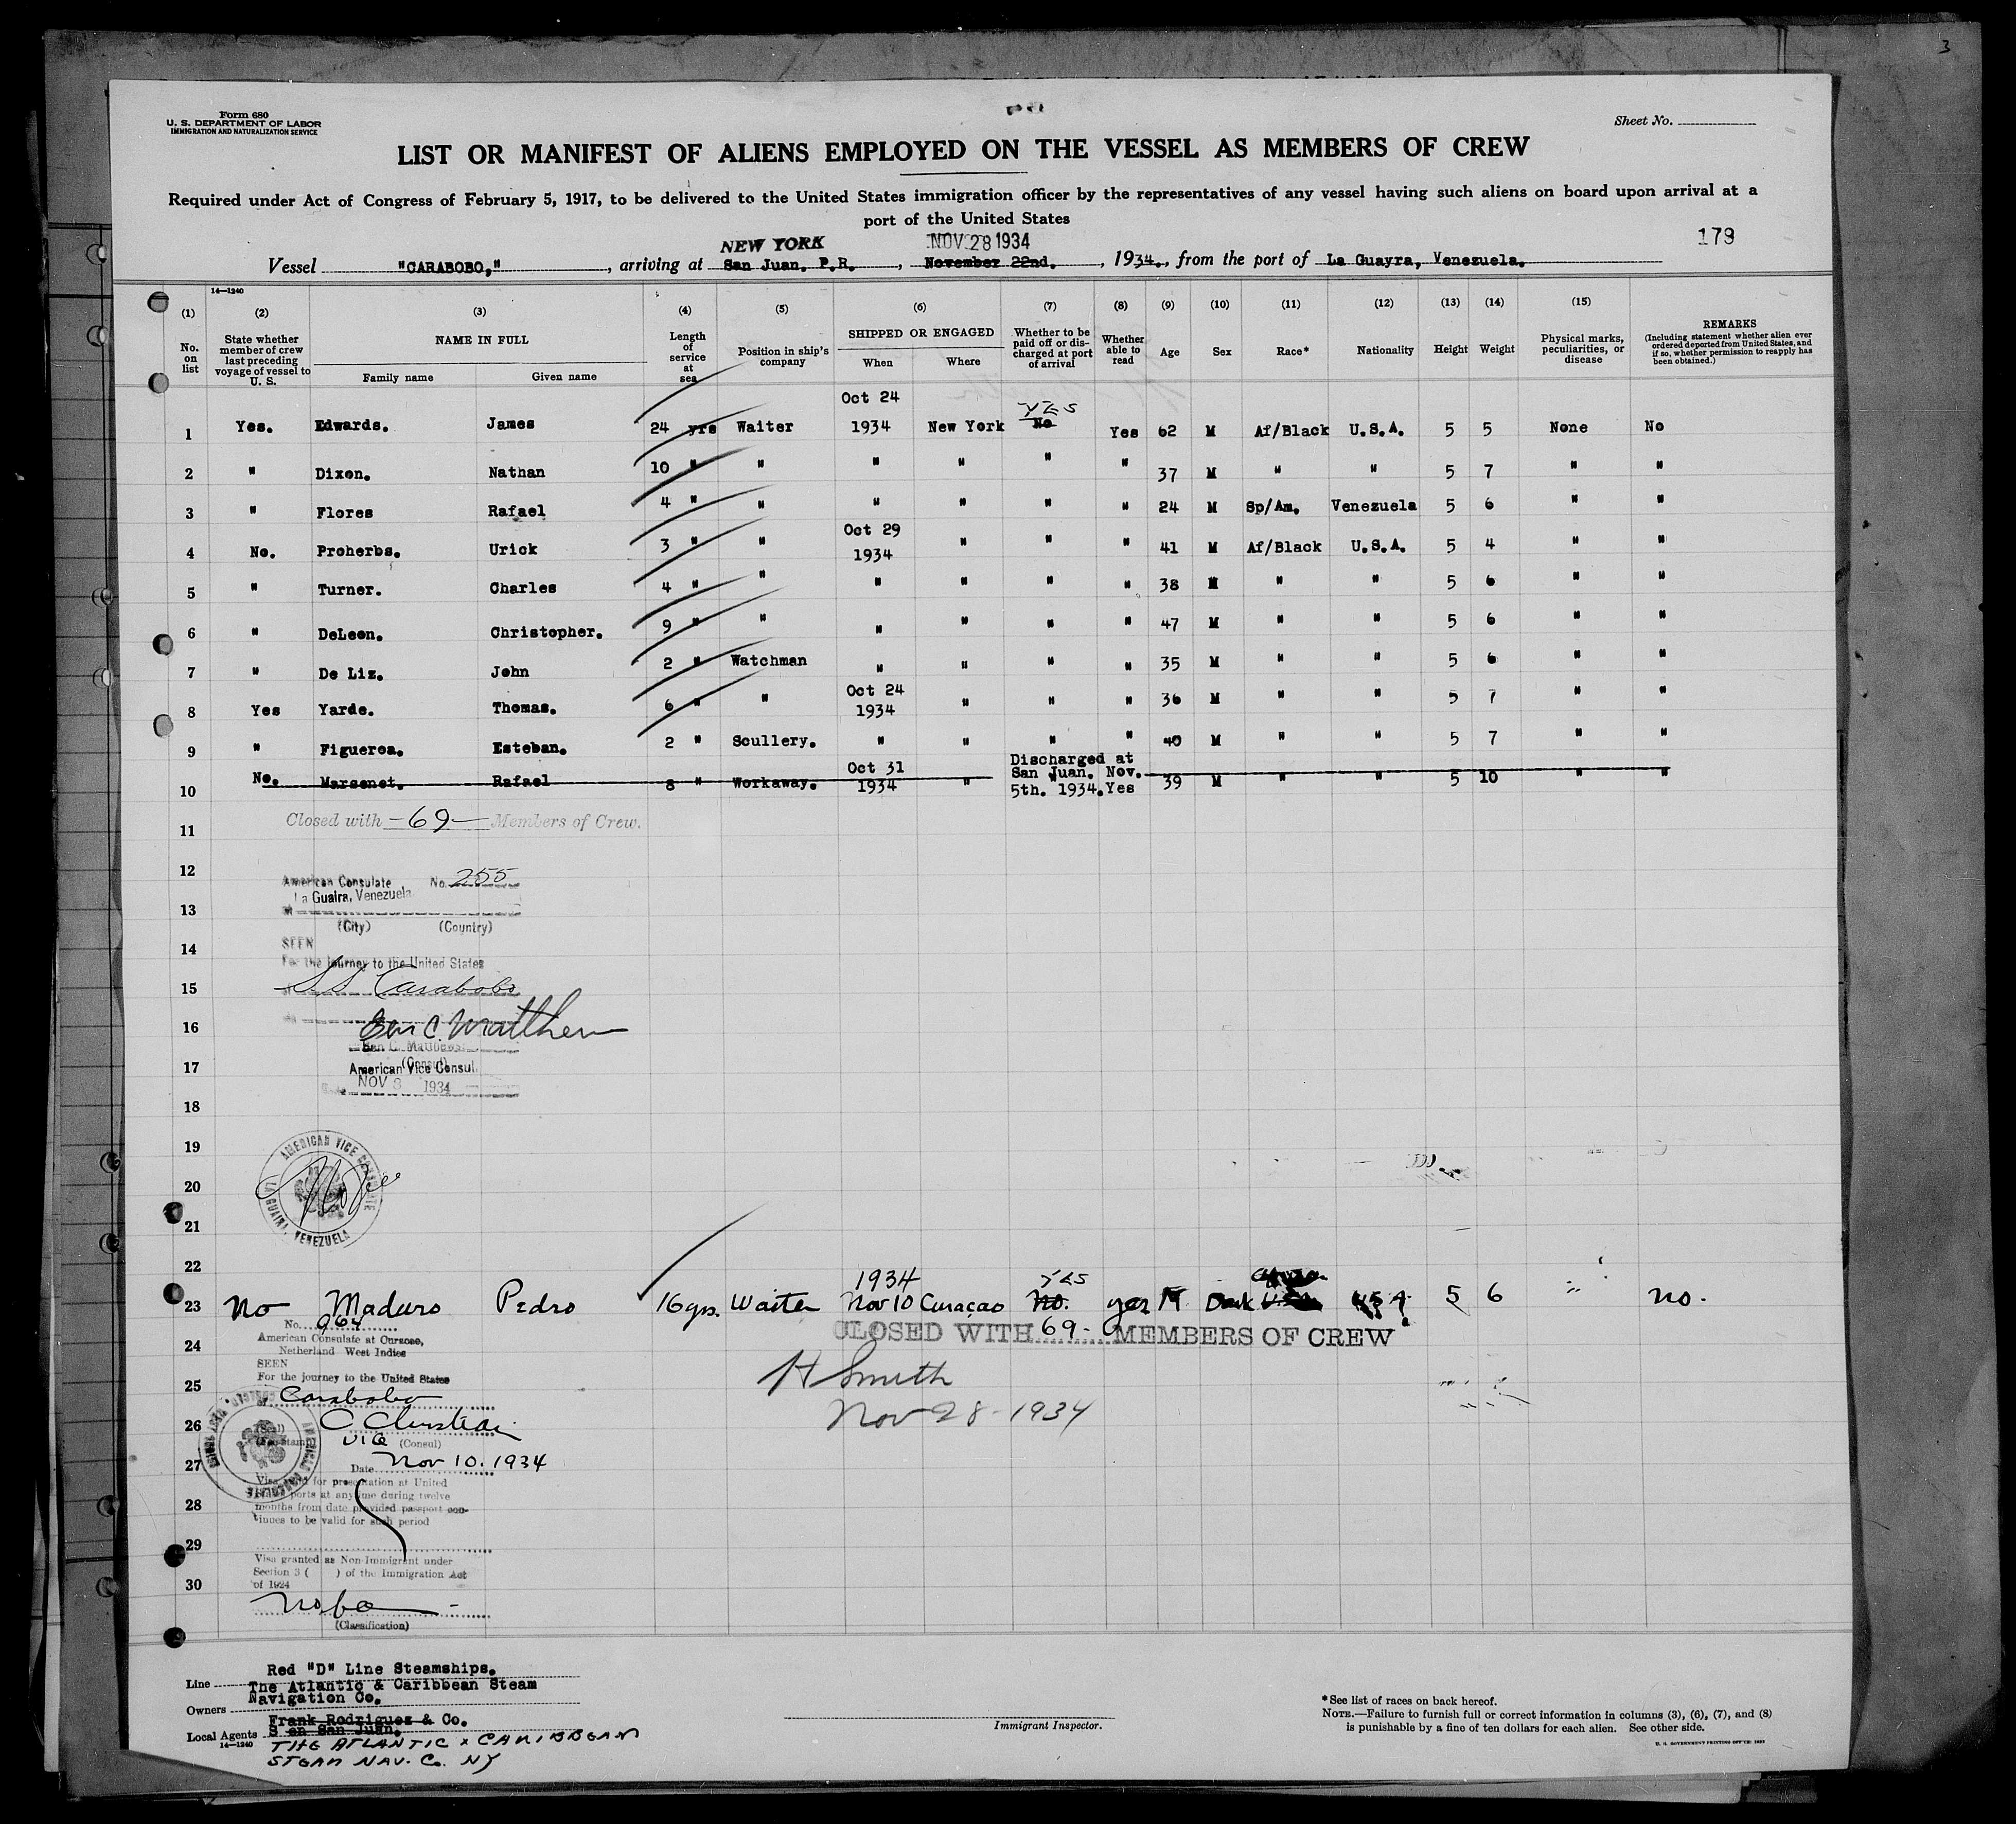 3
Form 680
U. S. DEPARTMENT OF LABOR
IMMIGRATION AND NATURALIZATION SERVICE
Sheet No.
LIST OR MANIFEST OF ALIENS EMPLOYED ON THE VESSEL AS MEMBERS OF CREW
Required under Act of Congress of February 5, 1917, to be delivered to the United States immigration officer by the representatives of any vessel having such aliens on board upon arrival at a
port of the United States
179
NEW YORK NOV 28 1934
Vessel "CARABOBO," , arriving at San Juan. P.R. , November 22nd. , 1934., from the port of La Guayra, Venezuela.
14—1240
(1) (2) (3) (4) (5) (6) (7) (8) (9) (10) (11) (12) (13) (14) (15)
No. on list
State whether member of crew last preceding voyage of vessel to U. S.
NAME IN FULL
Family name Given name
Length of service at sea
Position in ship's company
SHIPPED OR ENGAGED
When Where
Whether to be paid off or discharged at port of arrival
Whether able to read
Age
Sex
Race*
Nationality
Height
Weight
Physical marks, peculiarities, or disease
REMARKS
(Including statement whether alien ever ordered deported from United States, and if so, whether permission to reapply has been obtained.)
Oct 24
YES
1 Yes. Edwards. James 24 yrs Waiter 1934 New York No Yes 62 M Af/Black U.S.A. 5 5 None No
2 " Dixon. Nathan 10 " " " " " " 37 M " " 5 7 " "
3 " Flores Rafael 4 " " " " " " 24 M Sp/Am. Venezuela 5 6 " "
Oct 29
4 No. Proherbs. Urick 3 " " 1934 " " " 41 M Af/Black U.S.A. 5 4 " "
5 " Turner. Charles 4 " " " " " " 38 M " " 5 6 " "
6 " DeLeon. Christopher. 9 " " " " " " 47 M " " 5 6 " "
7 " De Liz. John 2 " Watchman " " " " 35 M " " 5 6 " "
Oct 24
8 Yes Yarde. Thomas. 6 " " 1934 " " " 36 M " " 5 7 " "
9 " Figueroa. Esteban. 2 " Scullery. " " " " 40 M " " 5 7 " "
Oct 31 Discharged at San Juan. Nov.
10 No. Marsenet. Rafael 8 " Workaway. 1934 " 5th. 1934. Yes 39 M " " 5 10 " "
11 Closed with -69- Members of Crew.
12
American Consulate No. 255
La Guaira, Venezuela
13
(City) (Country)
14
SEEN
For the journey to the United States
15 SS Carabobo
16 Ben C. Matthews
Ben C. Matthews
(Consul)
17 American Vice Consul.
NOV 8 1934
18
19
AMERICAN VICE CONSULATE
LA GUAIRA, VENEZUELA
20 No fee
21
22
1934 YES
23 No Maduro Pedro 16 yrs. Waiter Nov 10 Curaçao No. yes M Dark U.S.A. 5 6 " no.
No. 964
American Consulate at Curacao,
Netherland West Indies
CLOSED WITH 69- MEMBERS OF CREW
24
SEEN
For the journey to the United States
H Smith
25 Carabobo
Nov 28 - 1934
26
(Seal)
Vice (Consul)
27
Date Nov 10. 1934
Visa valid for presentation at United
States ports at any time during twelve
28 months from date provided passport con-
tinues to be valid for such period
29
Visa granted as Non-Immigrant under
Section 3 ( ) of the Immigration Act
30 of 1924
No fee -
(Classification)
Line Red "D" Line Steamships.
Owners The Atlantic & Caribbean Steam
Navigation Co.
Local Agents Frank Rodriguez & Co.
S en San Juan.
14—1240
THE ATLANTIC & CARIBBEAN
STEAM NAV. Co. NY
Immigrant Inspector.
*See list of races on back hereof.
NOTE.—Failure to furnish full or correct information in columns (3), (6), (7), and (8)
is punishable by a fine of ten dollars for each alien. See other side.
U. S. GOVERNMENT PRINTING OFFICE: 1933